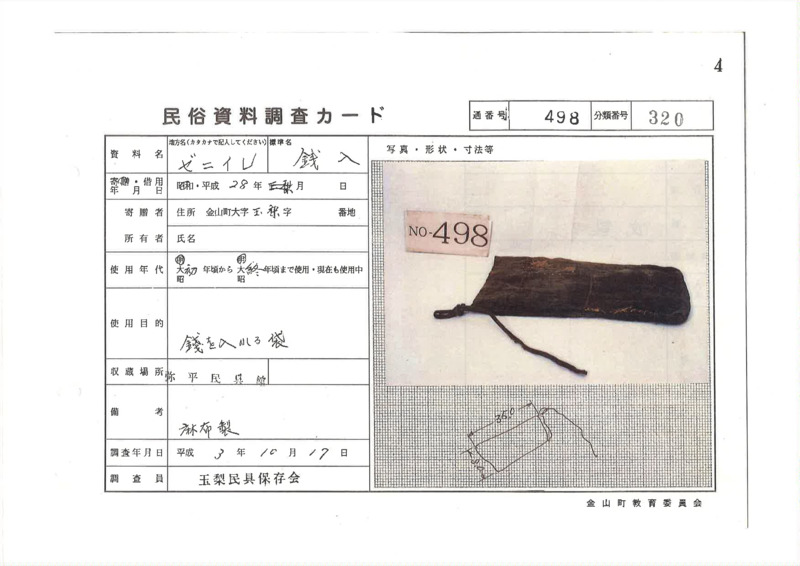 4
民俗資料調査カード
通番号 498 分類番号 320
資料名
地方名(カタカナで記入してください) ゼニイレ
標準名 銭入
写真・形状・寸法等
寄贈・借用年月日
昭和・平成 28年 月 日
寄贈者
住所 金山町大字玉梨字 番地
所有者
氏名
使用年代
明大昭 初年頃から 明大昭 終年頃まで使用・現在も使用中
使用目的
銭を入れる袋
収蔵場所
弥平民具館
備考
麻布製
調査年月日
平成 3年 10月 17日
調査員
玉梨民具保存会
NO-498
35.0
金山町教育委員会